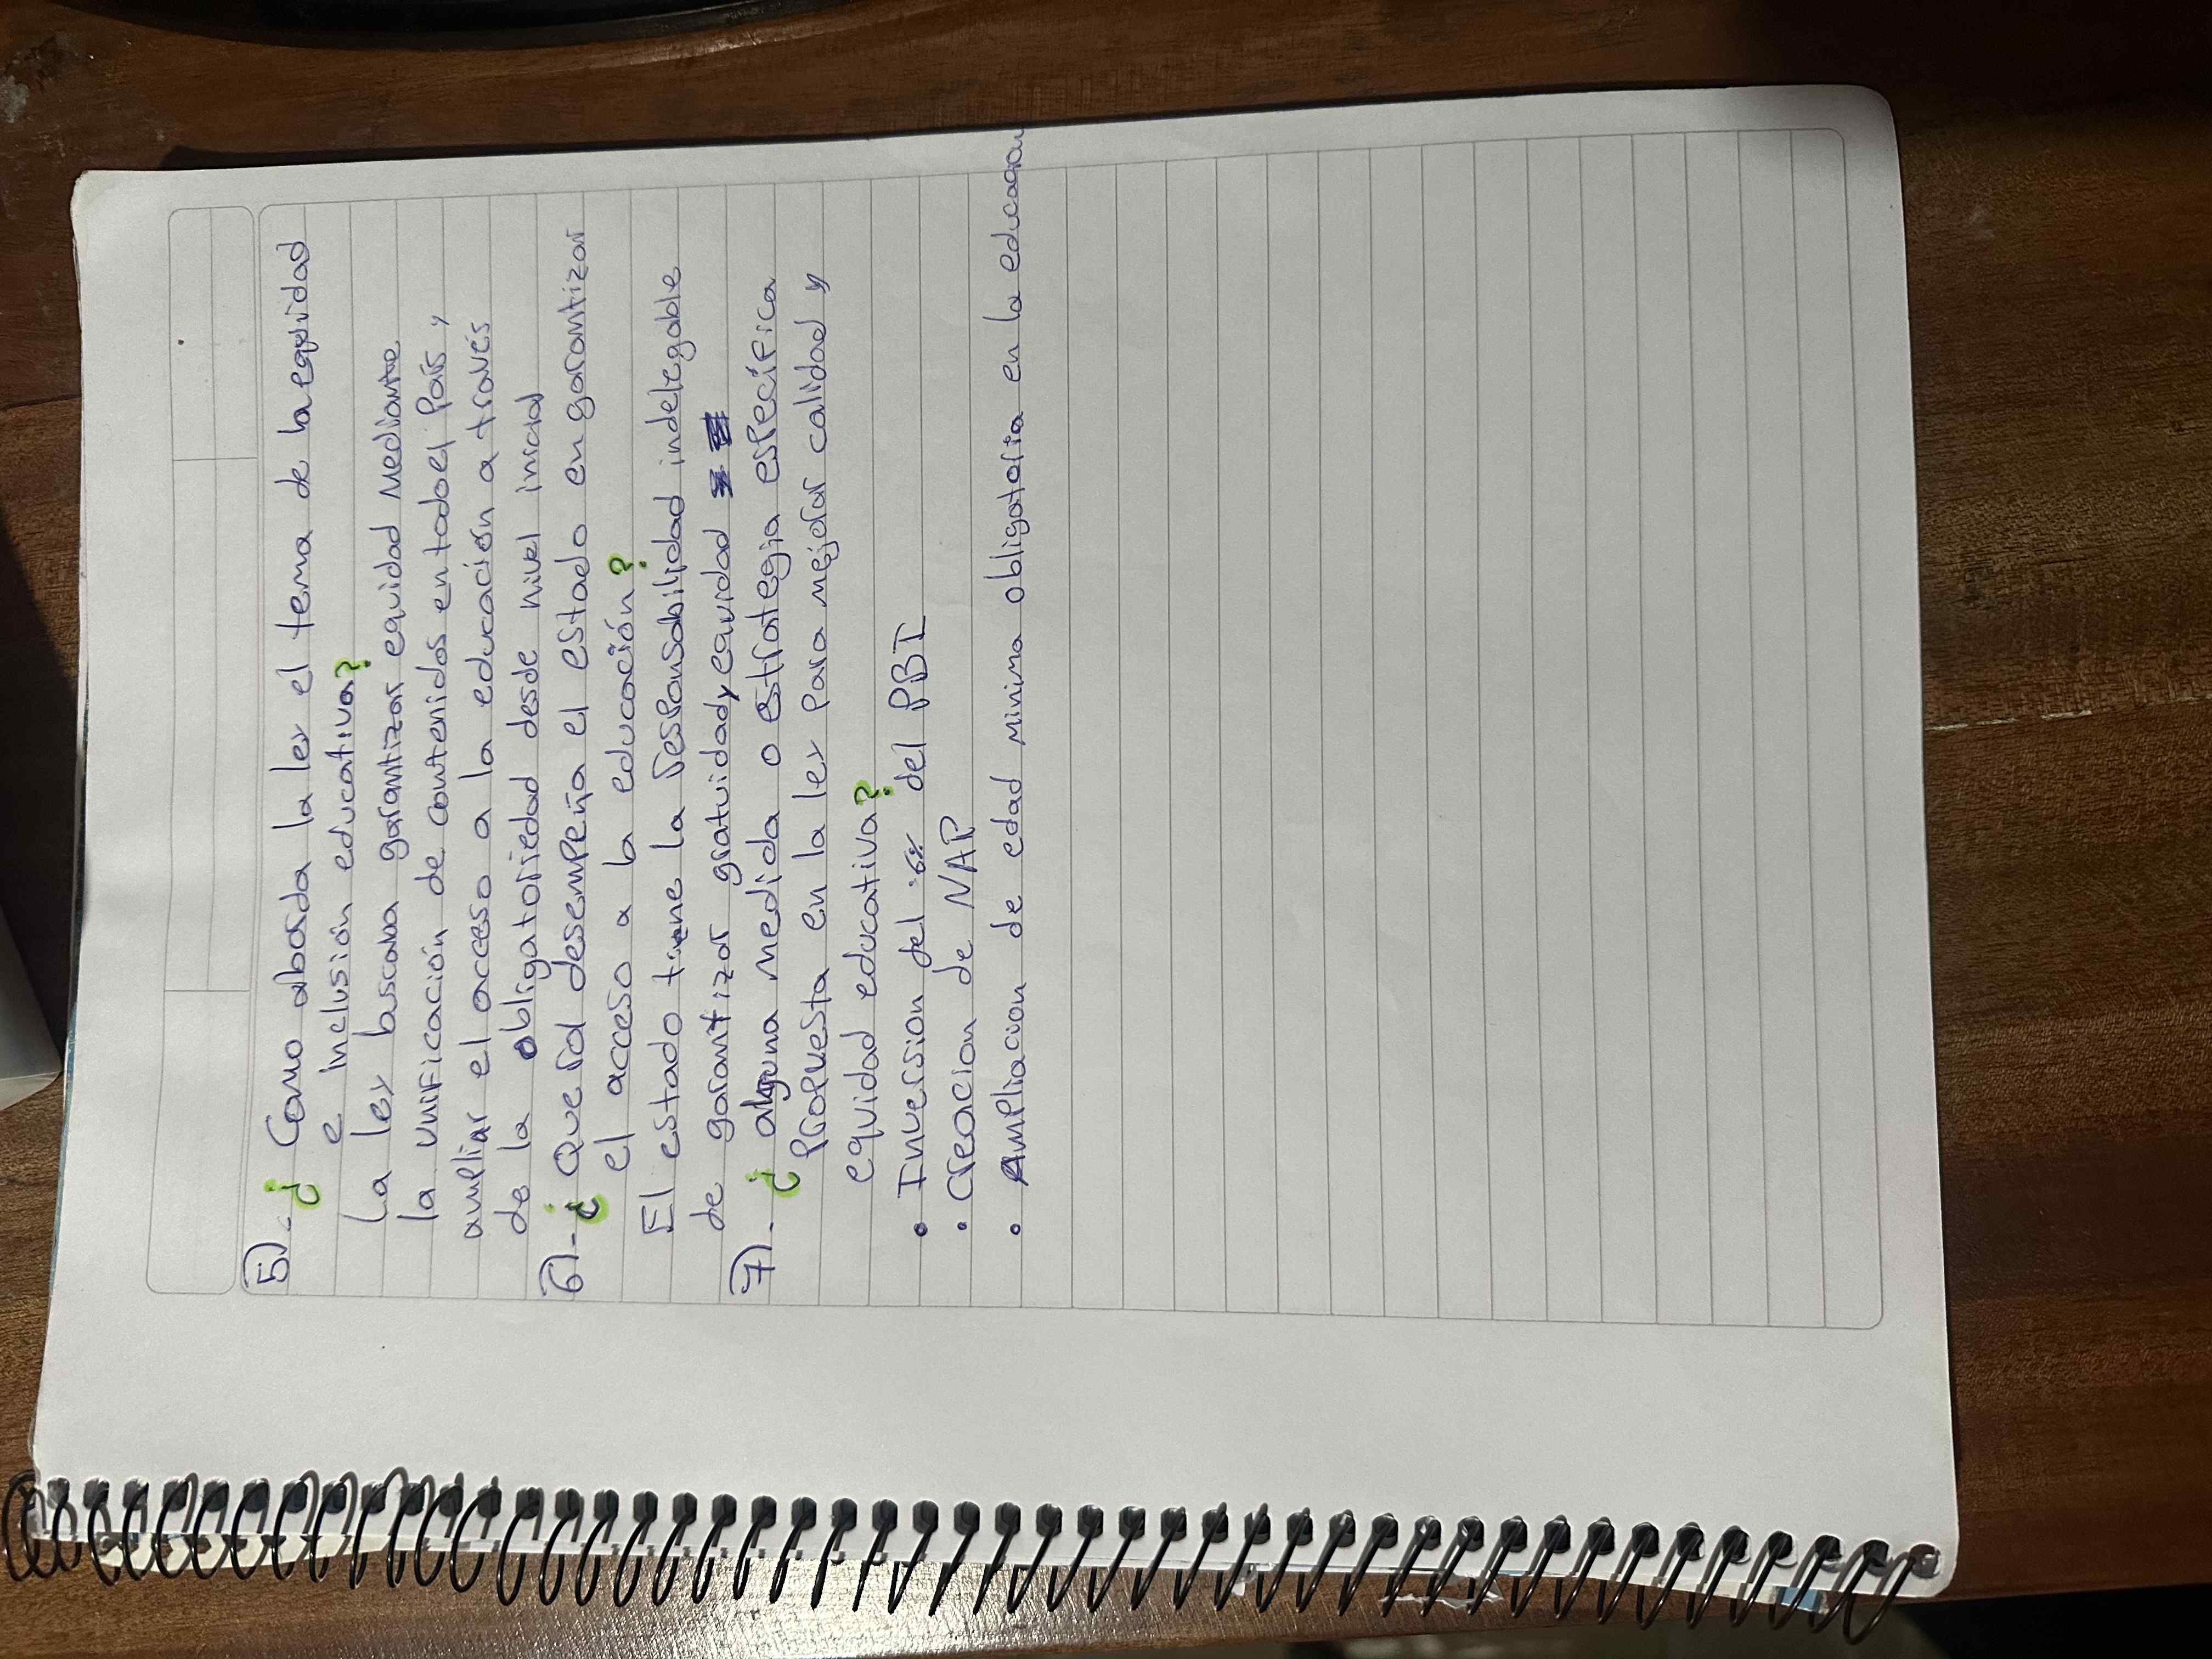 5).- ¿ Como aborda la ley el tema de la equidad
e inclusión educativa?
La ley buscaba garantizar equidad mediante
la unificación de contenidos en todo el país y
ampliar el acceso a la educación a través
de la obligatoriedad desde nivel inicial
6).- ¿ Que rol desempeña el estado en garantizar
el acceso a la educación?
El estado tiene la responsabilidad indelegable
de garantizar gratuidad y equidad
7).- ¿ alguna medida o estrategia específica
propuesta en la ley para mejorar calidad y
equidad educativa?
• Inversion del 6% del PBI
• Creacion de NAP
• Ampliacion de edad minima obligatoria en la educacion